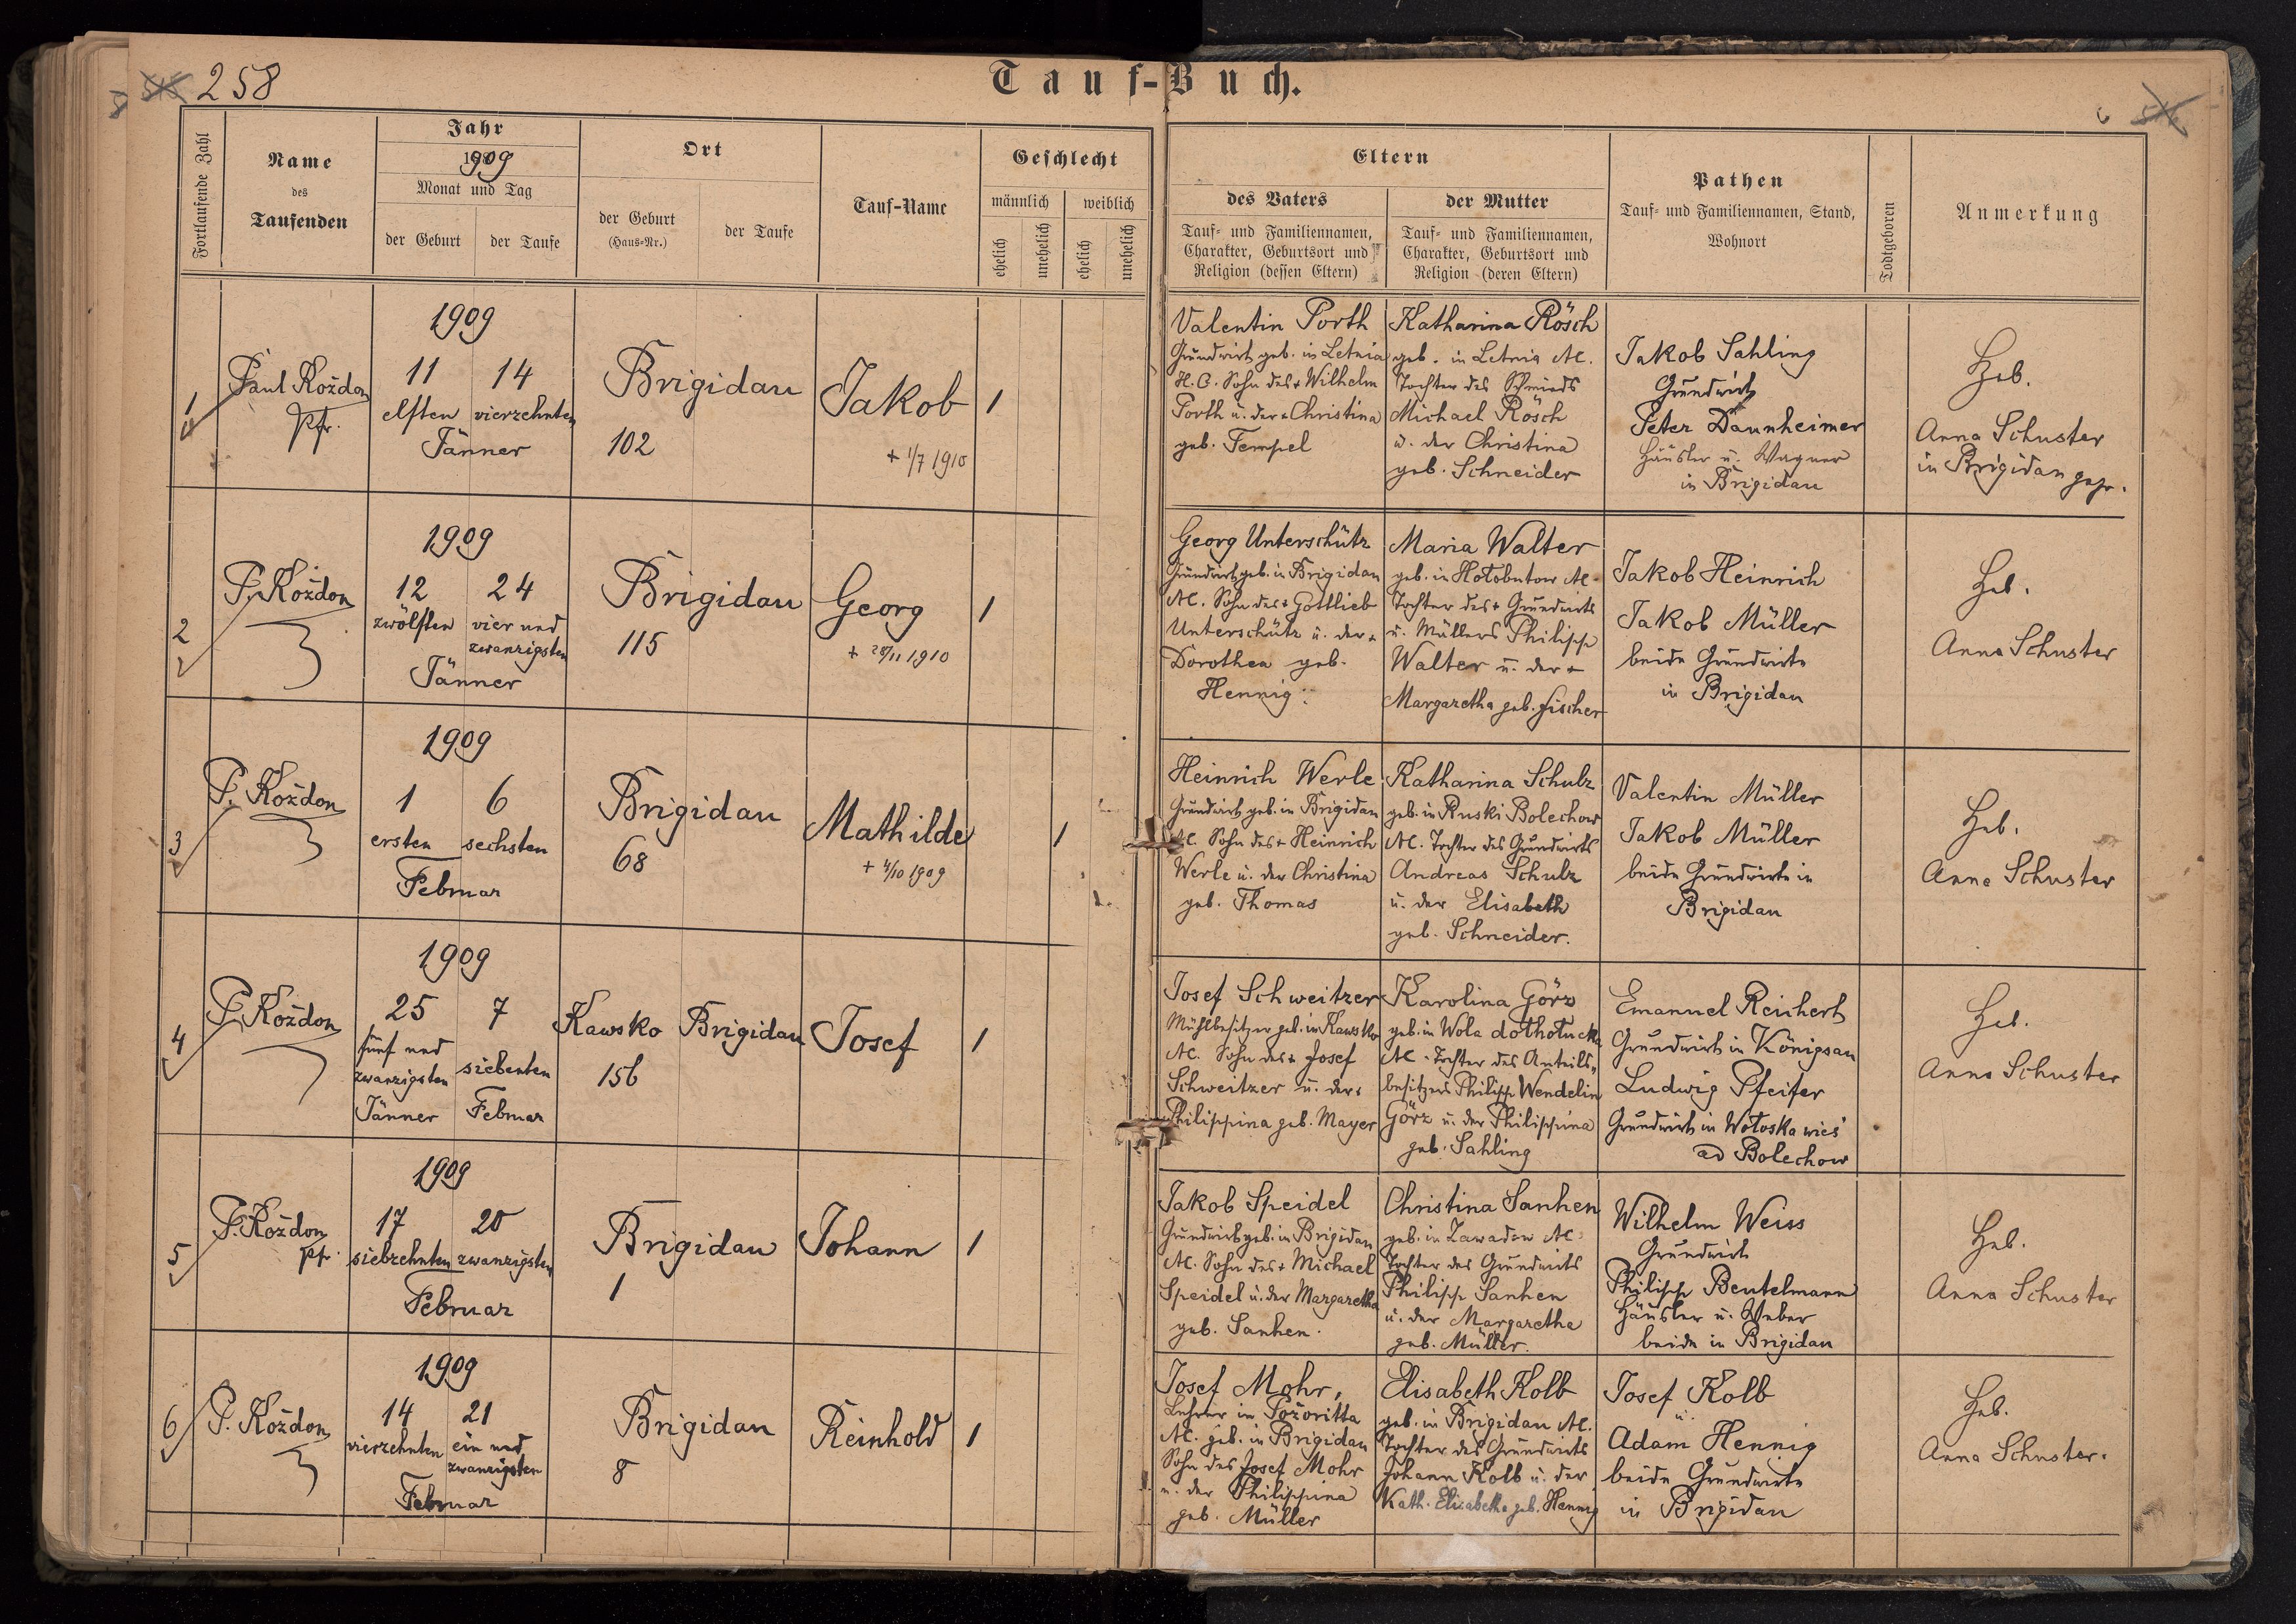 258
Tauf-Buch.
6
Fortlaufende Zahl
Name
des
Taufenden
Jahr
1909
Monat und Tag
der Geburt
der Taufe
Ort
der Geburt
(Haus-Nr.)
der Taufe
Tauf-Name
Geschlecht
männlich
weiblich
ehelich
unehelich
ehelich
unehelich
Eltern
des Vaters
Tauf- und Familiennamen,
Charakter, Geburtsort und
Religion (dessen Eltern)
der Mutter
Tauf- und Familiennamen,
Charakter, Geburtsort und
Religion (deren Eltern)
Pathen
Tauf- und Familiennamen, Stand,
Wohnort
Todtgeboren
Anmerkung
1
Paul Kożdon
Pfr.
1909
11
elften
14
vierzehnten
Jänner
Brigidau
102
Jakob
+ 1/7 1910
1
Valentin Porth
Grundwirt geb. in Letnia
H.C. Sohn des + Wilhelm
Porth u. der + Christina
geb. Tempel
Katharina Rösch
geb. in Letnia AC.
Tochter des Schmieds
Michael Rösch
u. der Christina
geb. Schneider
Jakob Sahling
Grundwirt
Peter Daunheimer
Häusler u. Wagner
in Brigidau
Heb.
Anna Schuster
in Brigidau gepr.
2
P. Kożdon
1909
12
zwölften
24
vier und
zwanzigsten
Jänner
Brigidau
115
Georg
+ 28/11 1910
1
Georg Unterschütz
Grundwirt geb. in Brigidau
AC. Sohn des + Gottlieb
Unterschütz u. der +
Dorothea geb.
Hennig.
Maria Walter
geb. in Hołobutow AC.
Tochter des + Grundwirts
u. Müllers Philipp
Walter u. der +
Margaretha geb. Fischer
Jakob Heinrich
Jakob Müller
beide Grundwirte
in Brigidau
Heb.
Anna Schuster
3
P. Kożdon
1909
1
ersten
6
sechsten
Februar
Brigidau
68
Mathilde
+ 4/10 1909
1
Heinrich Werle
Grundwirt geb. in Brigidau
AC. Sohn des + Heinrich
Werle u. der Christina
geb. Thomas
Katharina Schulz
geb. in Ruski Bolechow
AC. Tochter des Grundwirts
Andreas Schulz
u. der Elisabeth
geb. Schneider.
Valentin Müller
Jakob Müller
beide Grundwirte in
Brigidau
Heb.
Anna Schuster
4
P. Kożdon
1909
25
fünf und
zwanzigsten
Jänner
7
siebenten
Februar
Kawsko
156
Brigidau
Josef
1
Josef Schweitzer
Mühlbesitzer geb. in Kawsko
AC. Sohn des + Josef
Schweitzer u. der +
Philippina geb. Mayer
Karolina Görz
geb. in Wola dołhołucka
AC. Tochter des Anteils„
besitzers Philipp Wendelin
Görz u. der Philippina
geb. Sahling
Emanuel Reichert
Grundwirt in Königsau
Ludwig Pfeifer
Grundwirt in Wołoska wieś
ad Bolechow
Heb.
Anna Schuster
5
P. Kożdon
Pfr.
1909
17
siebzehnten
20
zwanzigsten
Februar
Brigidau
1
Johann
1
Jakob Speidel
Grundwirt geb. in Brigidau
AC. Sohn des + Michael
Speidel u. der Margaretha
geb. Sanhen.
Christina Sanhen
geb. in Zawadow AC.
Tochter des Grundwirts
Philipp Sanhen
u. der Margaretha
geb. Müller.
Wilhelm Weiss
Grundwirt
Philipp Beutelmann
Häusler u. Weber
beide in Brigidau
Heb.
Anna Schuster
6
P. Kożdon
1909
14
vierzehnten
21
ein und
zwanzigsten
Februar
Brigidau
8
Reinhold
1
Josef Mohr,
Lehrer in Pożoritta
AC. geb. in Brigidau
Sohn des Josef Mohr
u. der Philippina
geb. Müller
Elisabeth Kolb
geb. in Brigidau AC.
Tochter des Grundwirts
Johann Kolb u. der
Kath. Elisabetha geb. Hennig
Josef Kolb
u.
Adam Hennig
beide Grundwirte
in Brigidau
Heb.
Anna Schuster.